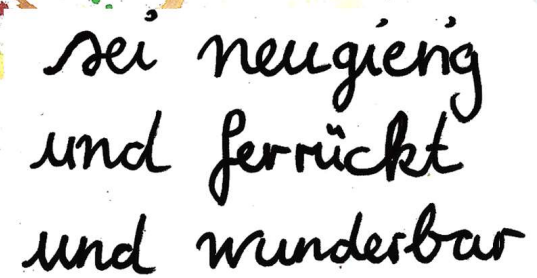 sei neugierig
und ferrückt
und wunderbar